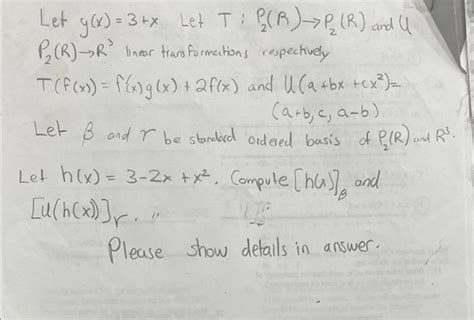 Let g(x) = 3+x Let T : P₂(R)→P₂(R) and U
P₂(R)→R³ linear transformations respectively
T(f(x)) = f'(x)g(x) + 2f(x) and U(a+bx+cx²)=
(a+b, c, a-b)
Let β and γ be standard ordered basis of P₂(R) and R³.
Let h(x) = 3-2x+x². Compute [h(x)]β and
[U(h(x))]γ.
Please show details in answer.